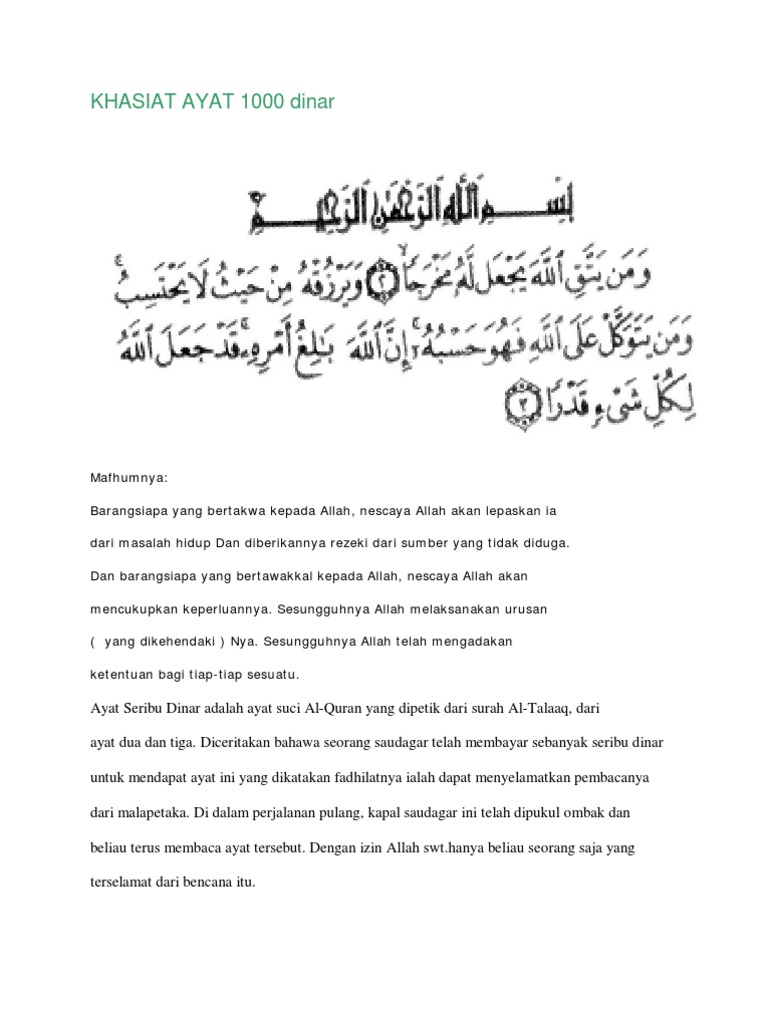 KHASIAT AYAT 1000 dinar
بِسْمِ اللَّهِ الرَّحْمَٰنِ الرَّحِيمِ
وَمَن يَتَّقِ ٱللَّهَ يَجْعَل لَّهُۥ مَخْرَجًا ۙ ٢ وَيَرْزُقْهُ مِنْ حَيْثُ لَا يَحْتَسِبُ ۚ
وَمَن يَتَوَكَّلْ عَلَى ٱللَّهِ فَهُوَ حَسْبُهُۥٓ ۚ إِنَّ ٱللَّهَ بَـٰلِغُ أَمْرِهِۦ ۚ قَدْ جَعَلَ ٱللَّهُ
لِكُلِّ شَىْءٍ قَدْرًا ٣
Mafhumnya:
Barangsiapa yang bertakwa kepada Allah, nescaya Allah akan lepaskan ia
dari masalah hidup Dan diberikannya rezeki dari sumber yang tidak diduga.
Dan barangsiapa yang bertawakkal kepada Allah, nescaya Allah akan
mencukupkan keperluannya. Sesungguhnya Allah melaksanakan urusan
( yang dikehendaki ) Nya. Sesungguhnya Allah telah mengadakan
ketentuan bagi tiap-tiap sesuatu.
Ayat Seribu Dinar adalah ayat suci Al-Quran yang dipetik dari surah Al-Talaaq, dari
ayat dua dan tiga. Diceritakan bahawa seorang saudagar telah membayar sebanyak seribu dinar
untuk mendapat ayat ini yang dikatakan fadhilatnya ialah dapat menyelamatkan pembacanya
dari malapetaka. Di dalam perjalanan pulang, kapal saudagar ini telah dipukul ombak dan
beliau terus membaca ayat tersebut. Dengan izin Allah swt.hanya beliau seorang saja yang
terselamat dari bencana itu.